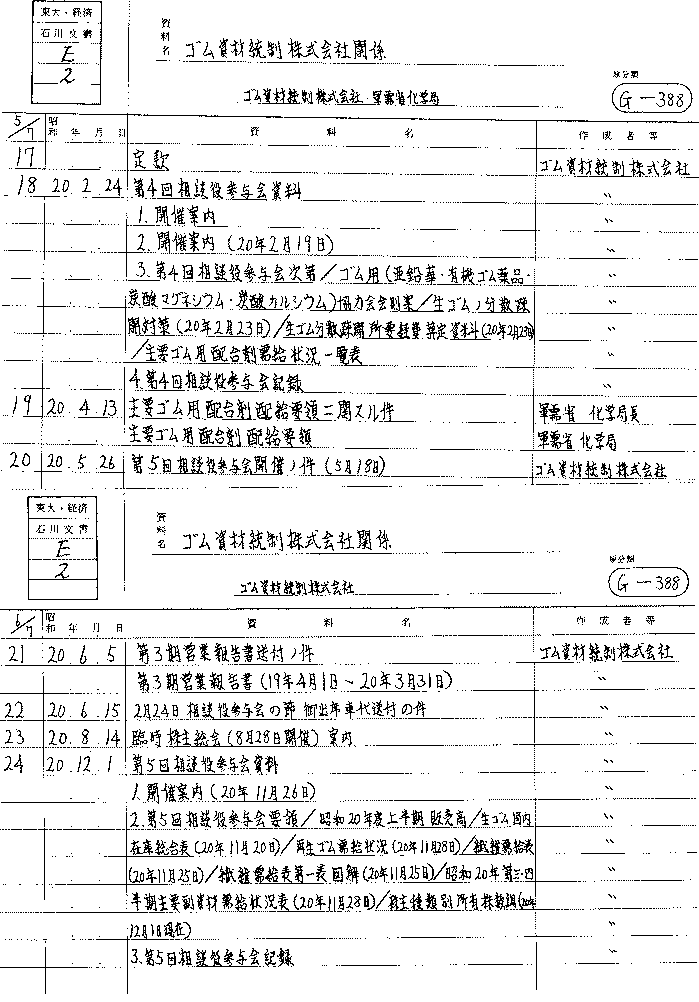 東大・経済
石川文書
E
2
資料名 ゴム資材統制株式会社関係
ゴム資材統制株式会社・軍需省化学局
原分類
G-388
5/7 昭和 年 月 日 資 料 名 作 成 者 等
17 定款 ゴム資材統制株式会社
18 20. 2. 24 第4回相談役参与会資料 〃
1. 開催案内 〃
2. 開催案内 (20年2月19日) 〃
3. 第4回相談役参与会次第/ゴム用(亜鉛華・有機ゴム薬品・ 〃
炭酸マグネシウム・炭酸カルシウム)協力会会則案/生ゴムノ分散疎 〃
開対策 (20年2月23日)/生ゴム分散疎開所要経費算定資料(20年2月23日) 〃
/主要ゴム用配合剤需給状況一覧表 〃
4. 第4回相談役参与会記録 〃
19 20. 4. 13 主要ゴム用配合剤配給要領ニ関スル件 軍需省 化学局長
主要ゴム用配合剤配給要領 軍需省 化学局
20 20. 5. 26 第5回相談役参与会開催ノ件 (5月18日) ゴム資材統制株式会社
東大・経済
石川文書
E
2
資料名 ゴム資材統制株式会社関係
ゴム資材統制株式会社
原分類
G-388
6/7 昭和 年 月 日 資 料 名 作 成 者 等
21 20. 6. 5 第3期営業報告書送付ノ件 ゴム資材統制株式会社
第3期営業報告書 (19年4月1日~20年3月31日) 〃
22 20. 6. 15 2月24日相談役参与会の節御出席車代送付の件 〃
23 20. 8. 14 臨時株主総会 (8月28日開催) 案内 〃
24 20. 12. 1 第5回相談役参与会資料 〃
1. 開催案内 (20年11月26日) 〃
2. 第5回相談役参与会要領/昭和20年度上半期販売高/生ゴム国内 〃
在庫総合表 (20年11月20日)/再生ゴム需給状況 (20年11月28日)/紙種需給表 〃
(20年11月25日)/紙種需給表第一表図解 (20年11月25日)/昭和20年第三・四 〃
半期主要副資材需給状況表 (20年11月28日)/株主種類別所有株数調(20年 〃
12月1日現在) 〃
3. 第5回相談役参与会記録 〃